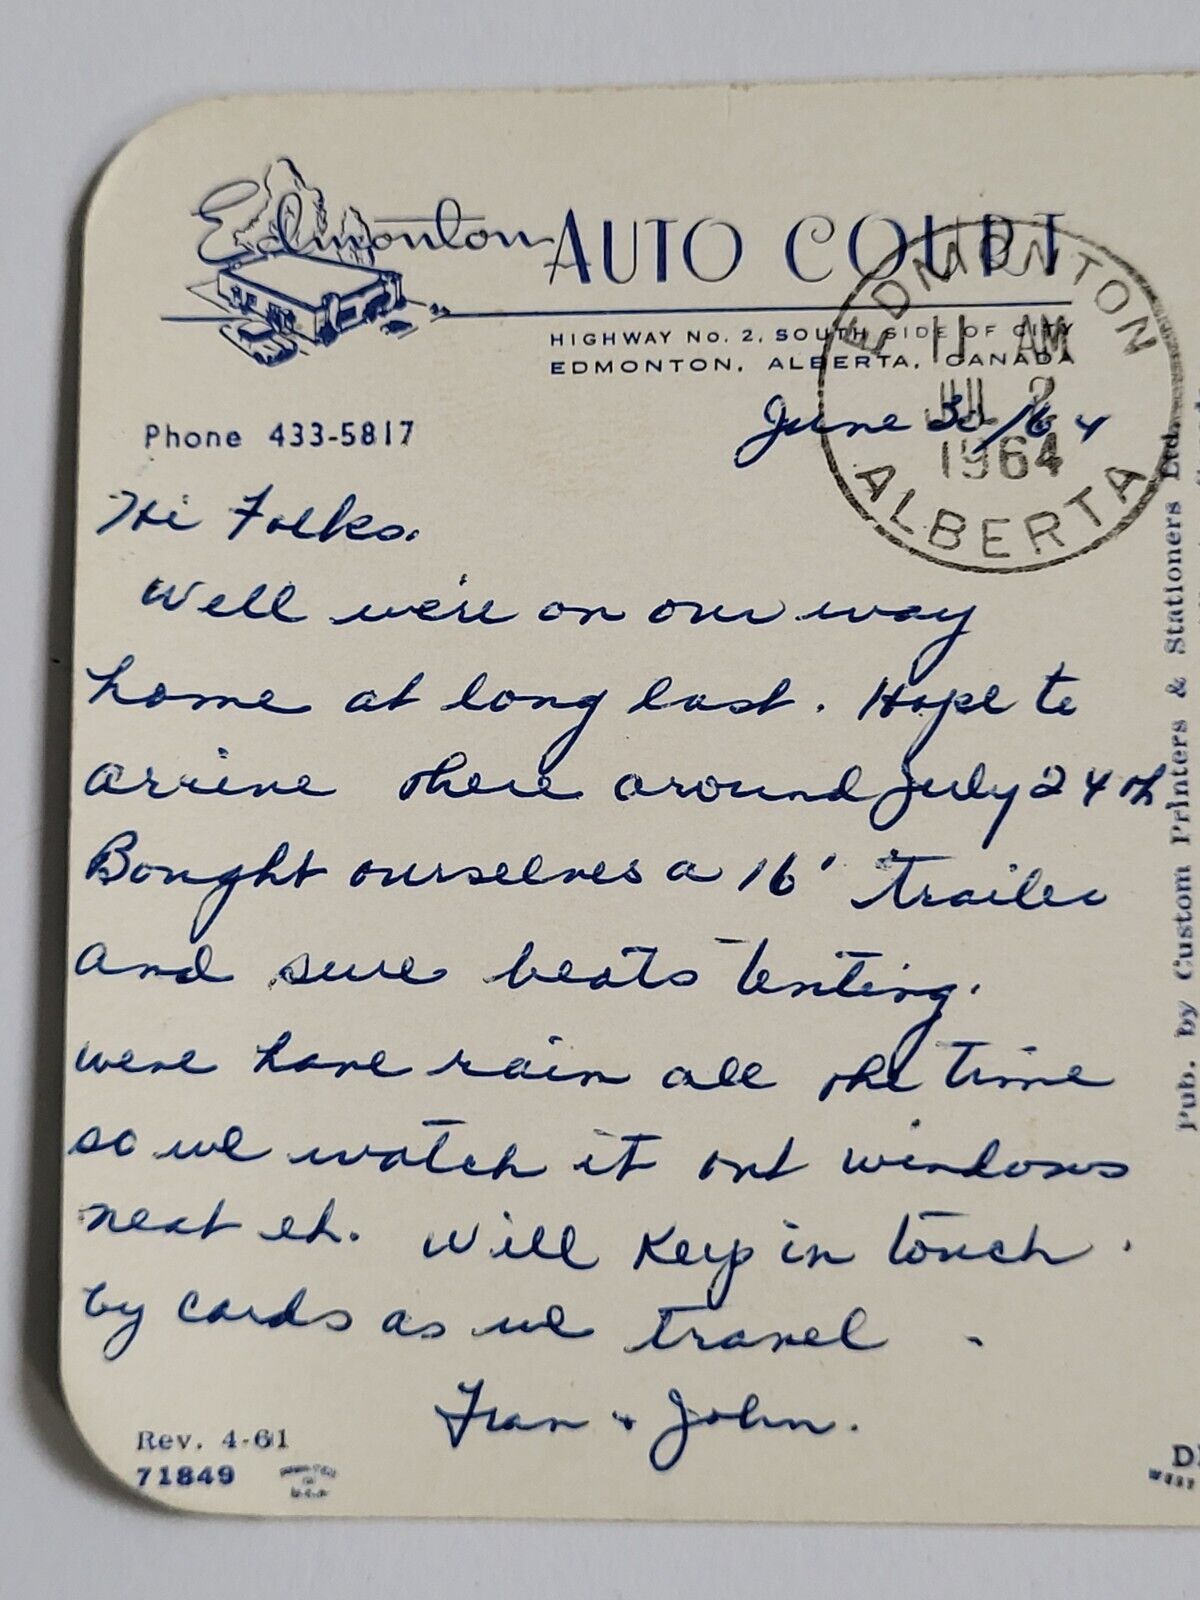 Edmonton AUTO COURT
HIGHWAY No. 2, SOUTH SIDE OF CITY
EDMONTON, ALBERTA, CANADA
EDMONTON
11 AM
JUL 2
1964
ALBERTA
Phone 433-5817
June 30/64
Hi Folks.
Well we're on our way
home at long last. Hope to
arrive there around July 24th
Bought ourselves a 16' trailer
and sure beats tenting.
were have rain all the time
so we watch it out windows
neat eh. Will Keep in touch.
by cards as we travel.
Fran & John.
Rev. 4-61
71849
Pub. by Custom Printers & Stationers Ltd.
WEST